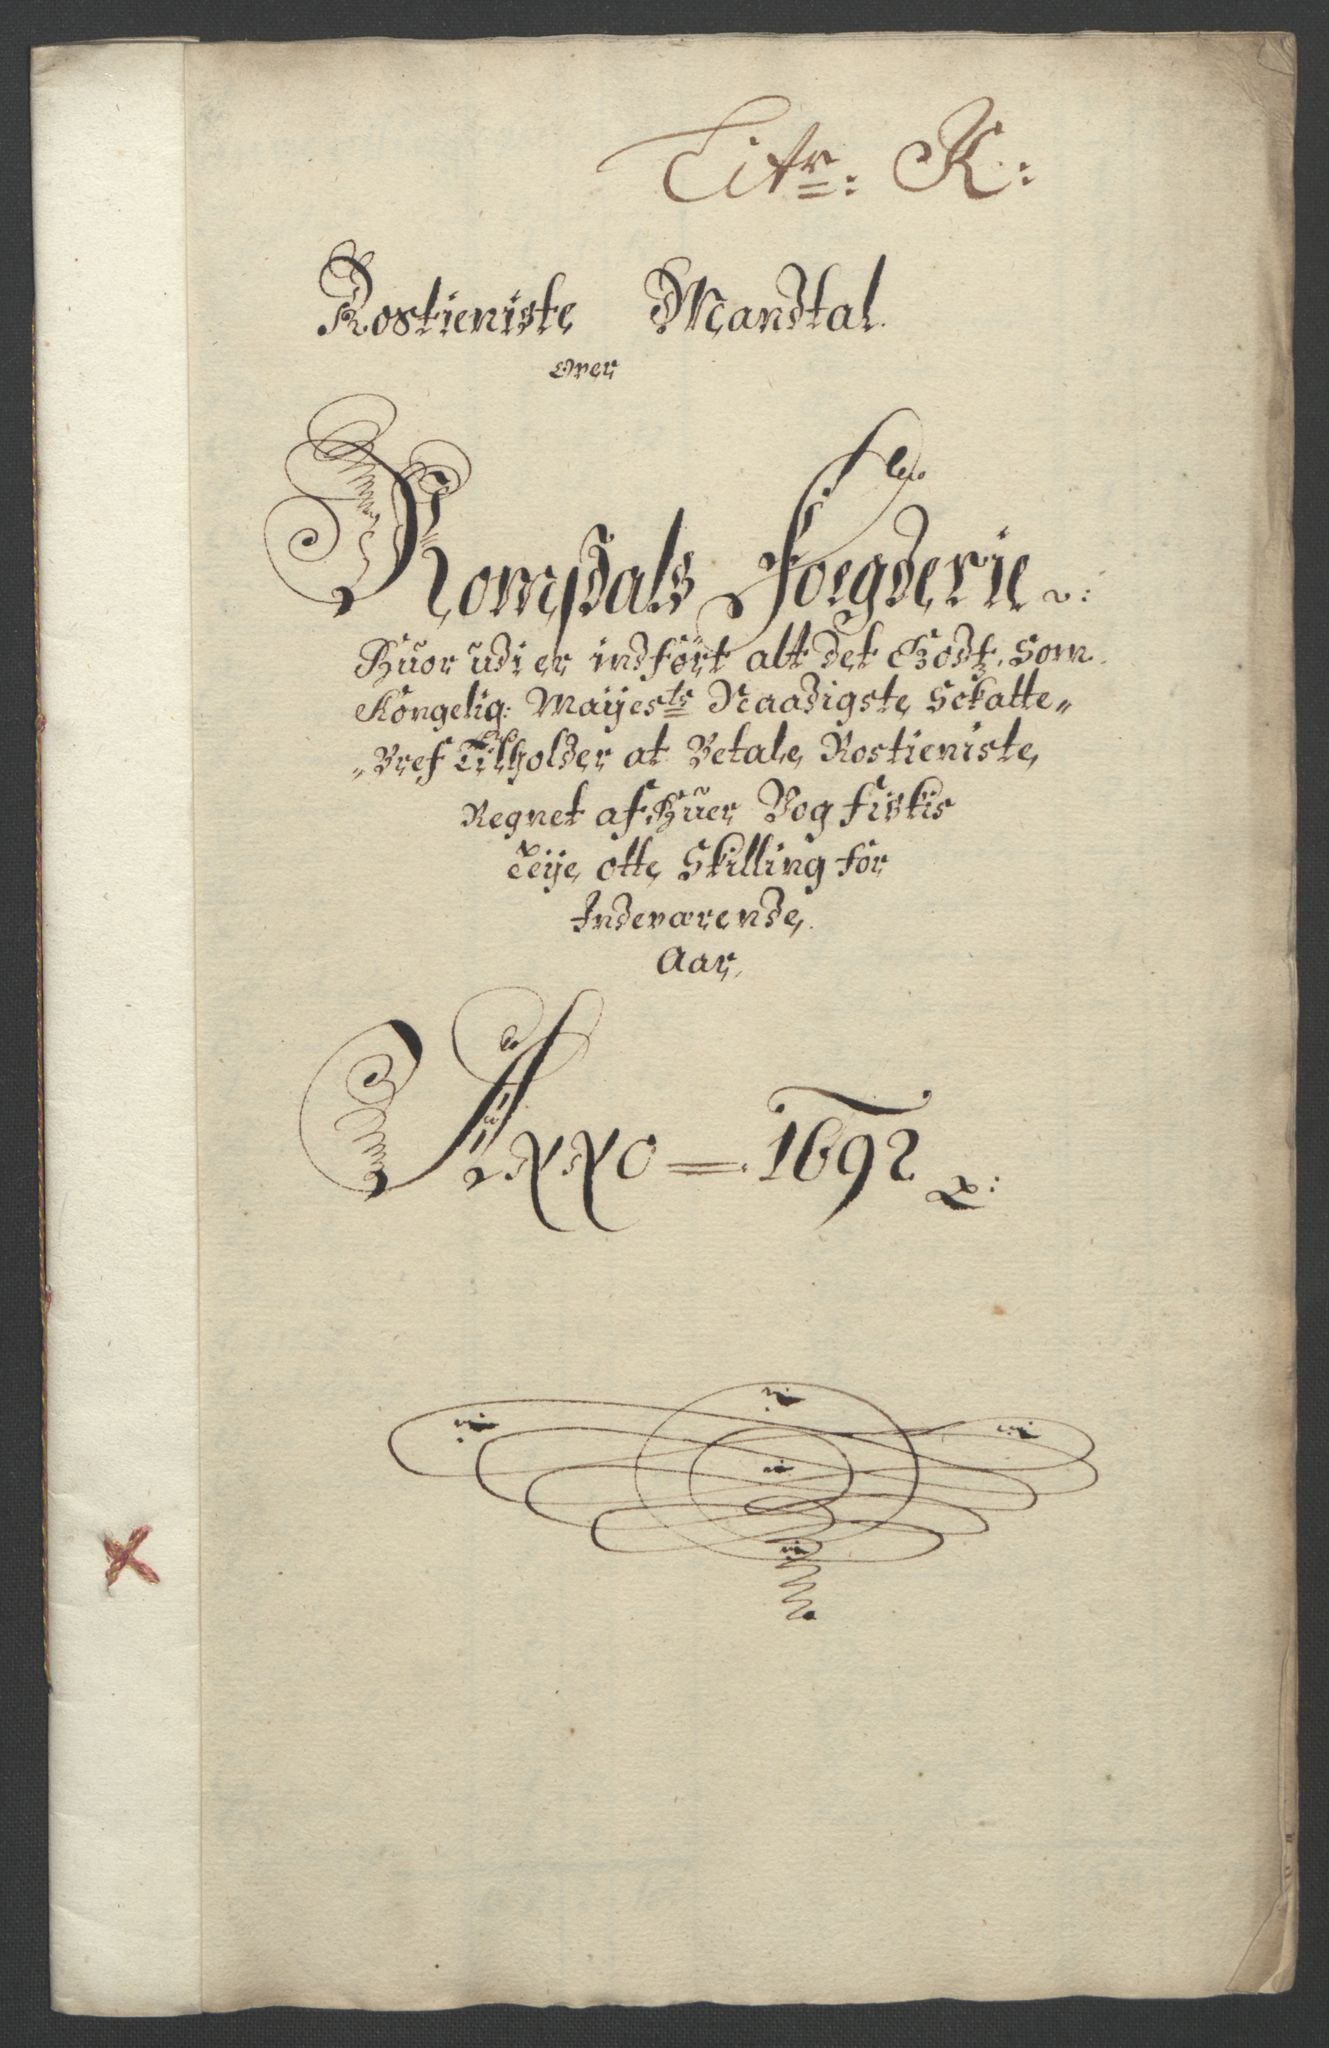 Litr: K:
Rostieniste Mandtal
over
Romsdals Foegderie
Huor udi er indført alt det Godtz, Som
Kongelig: Mayesttz Naadigste Sckatte
Bref Tilholder at Betale, Rostieniste,
Regnet af Huer Vog fiskis
Leije, otte, Skilling for
Indeværende,
Aar,
Anno 1692